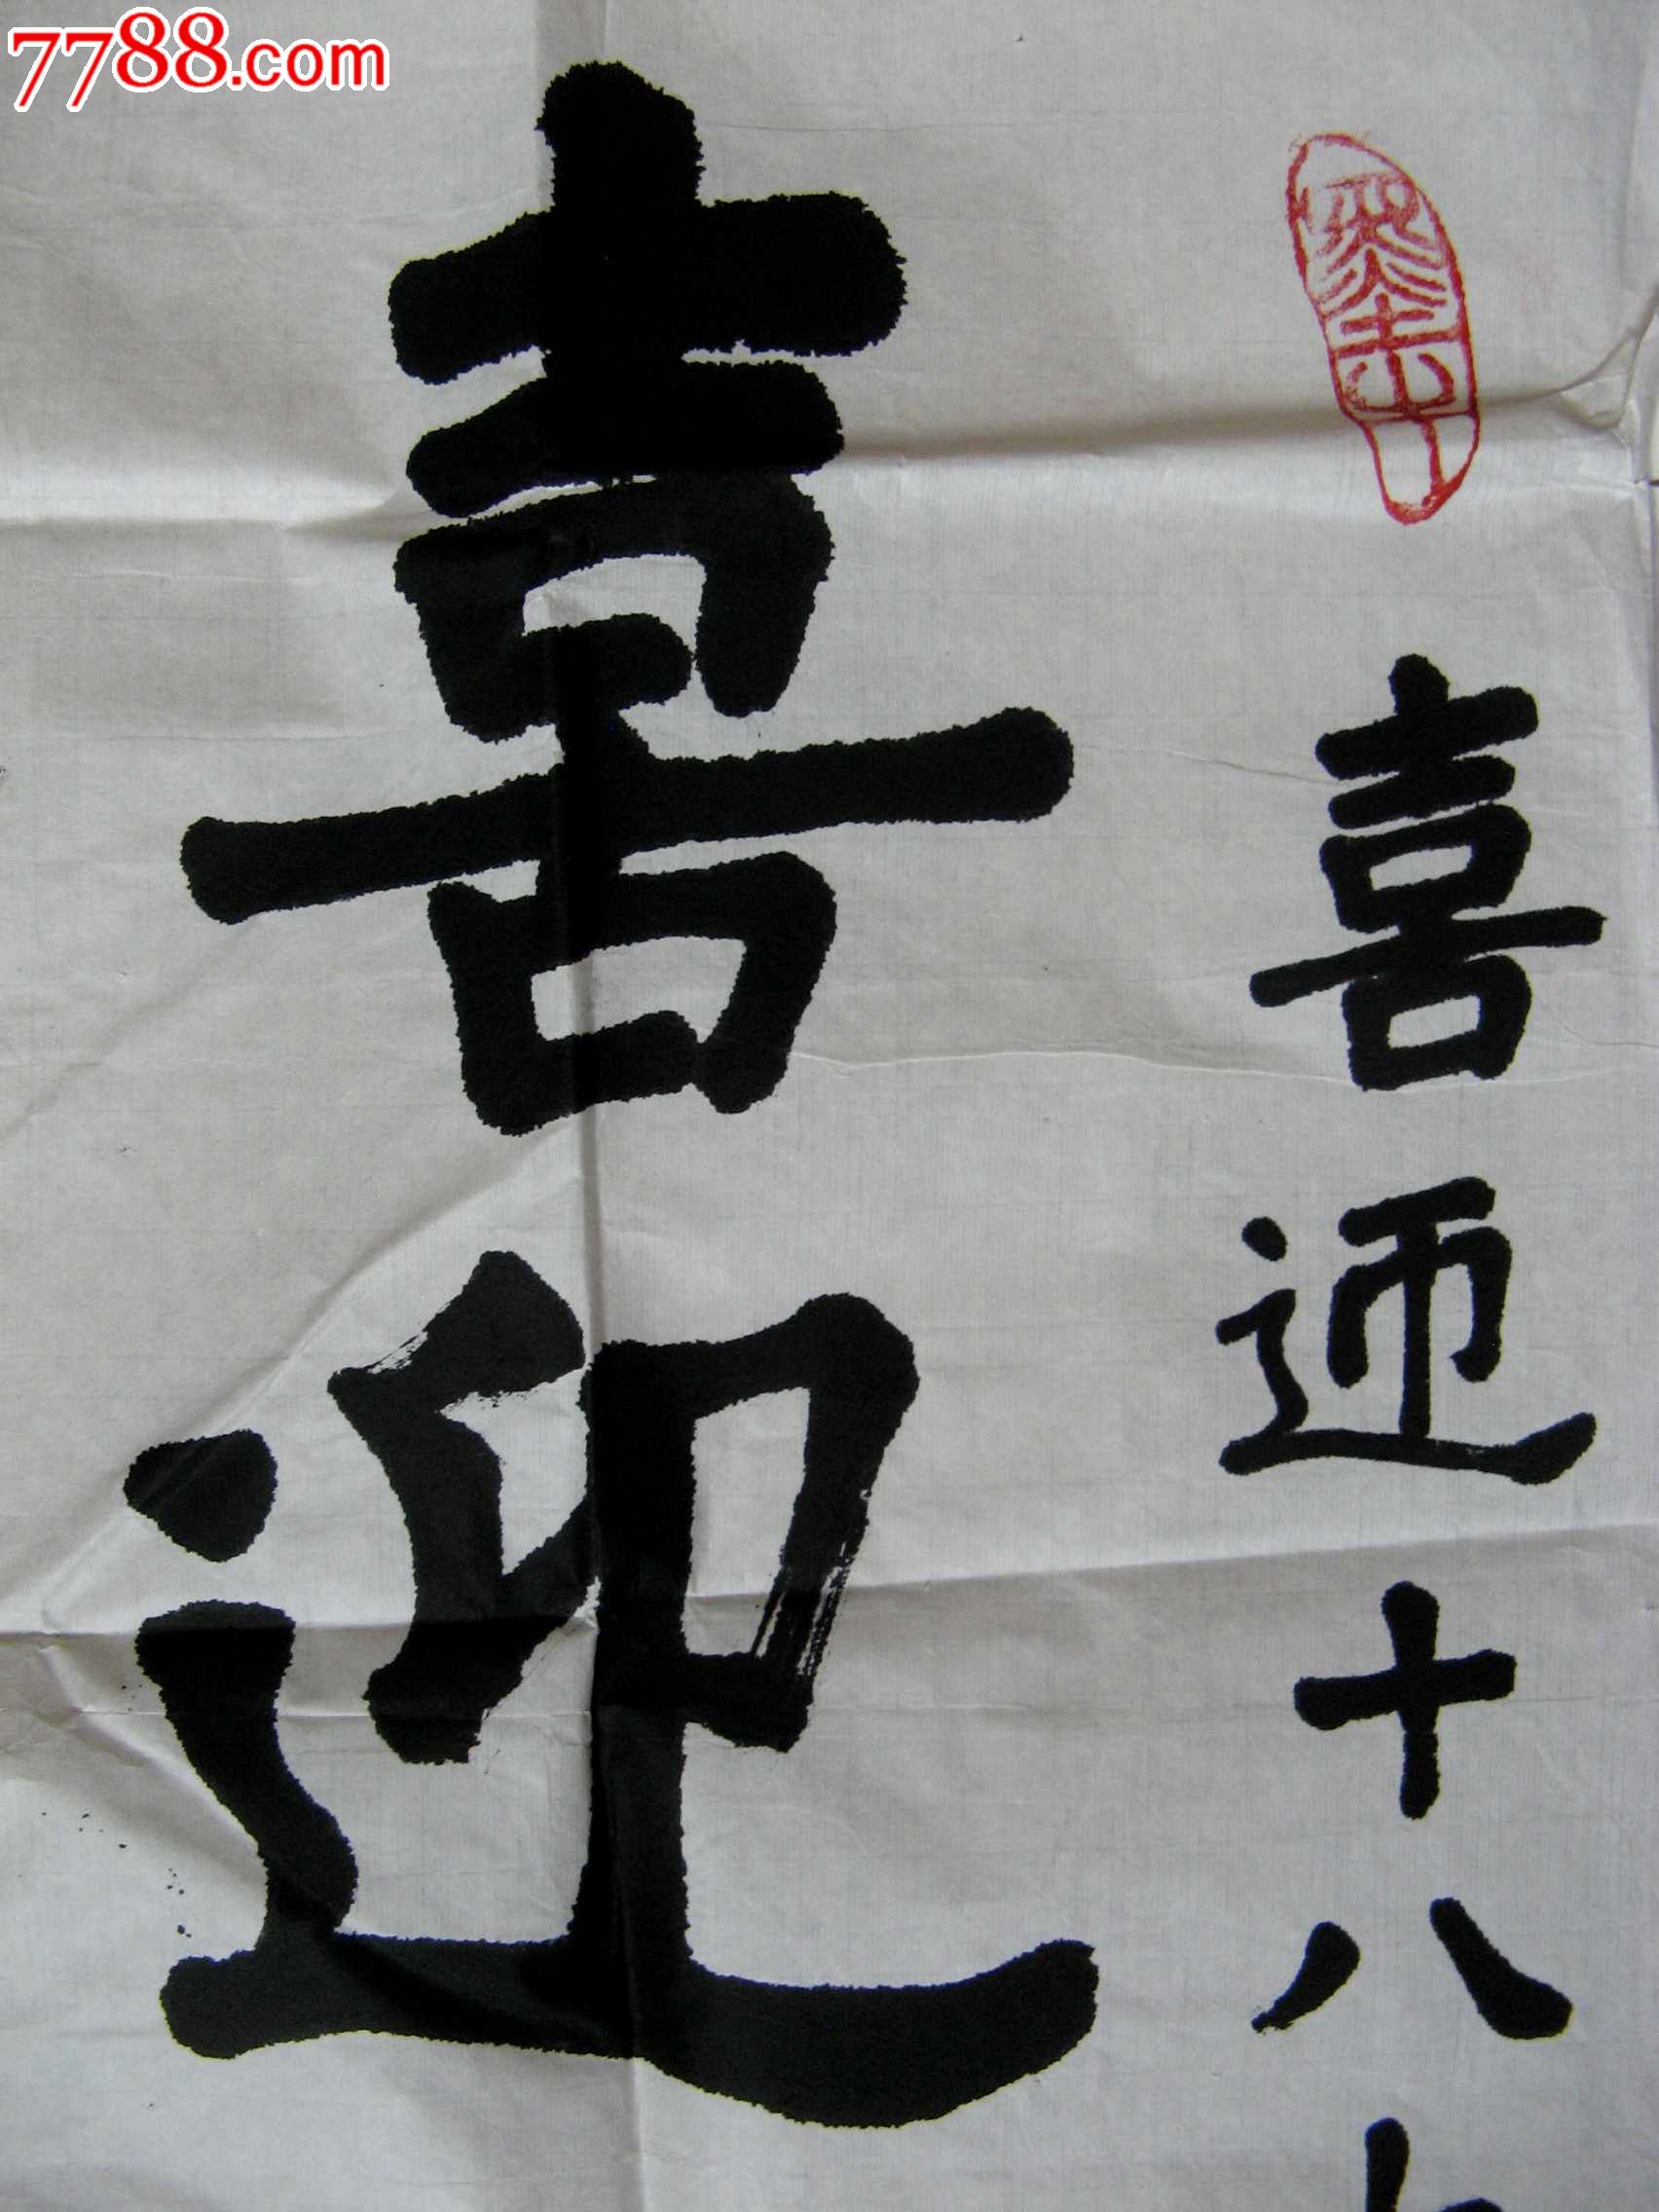 7788.com
喜迎十八
喜迎